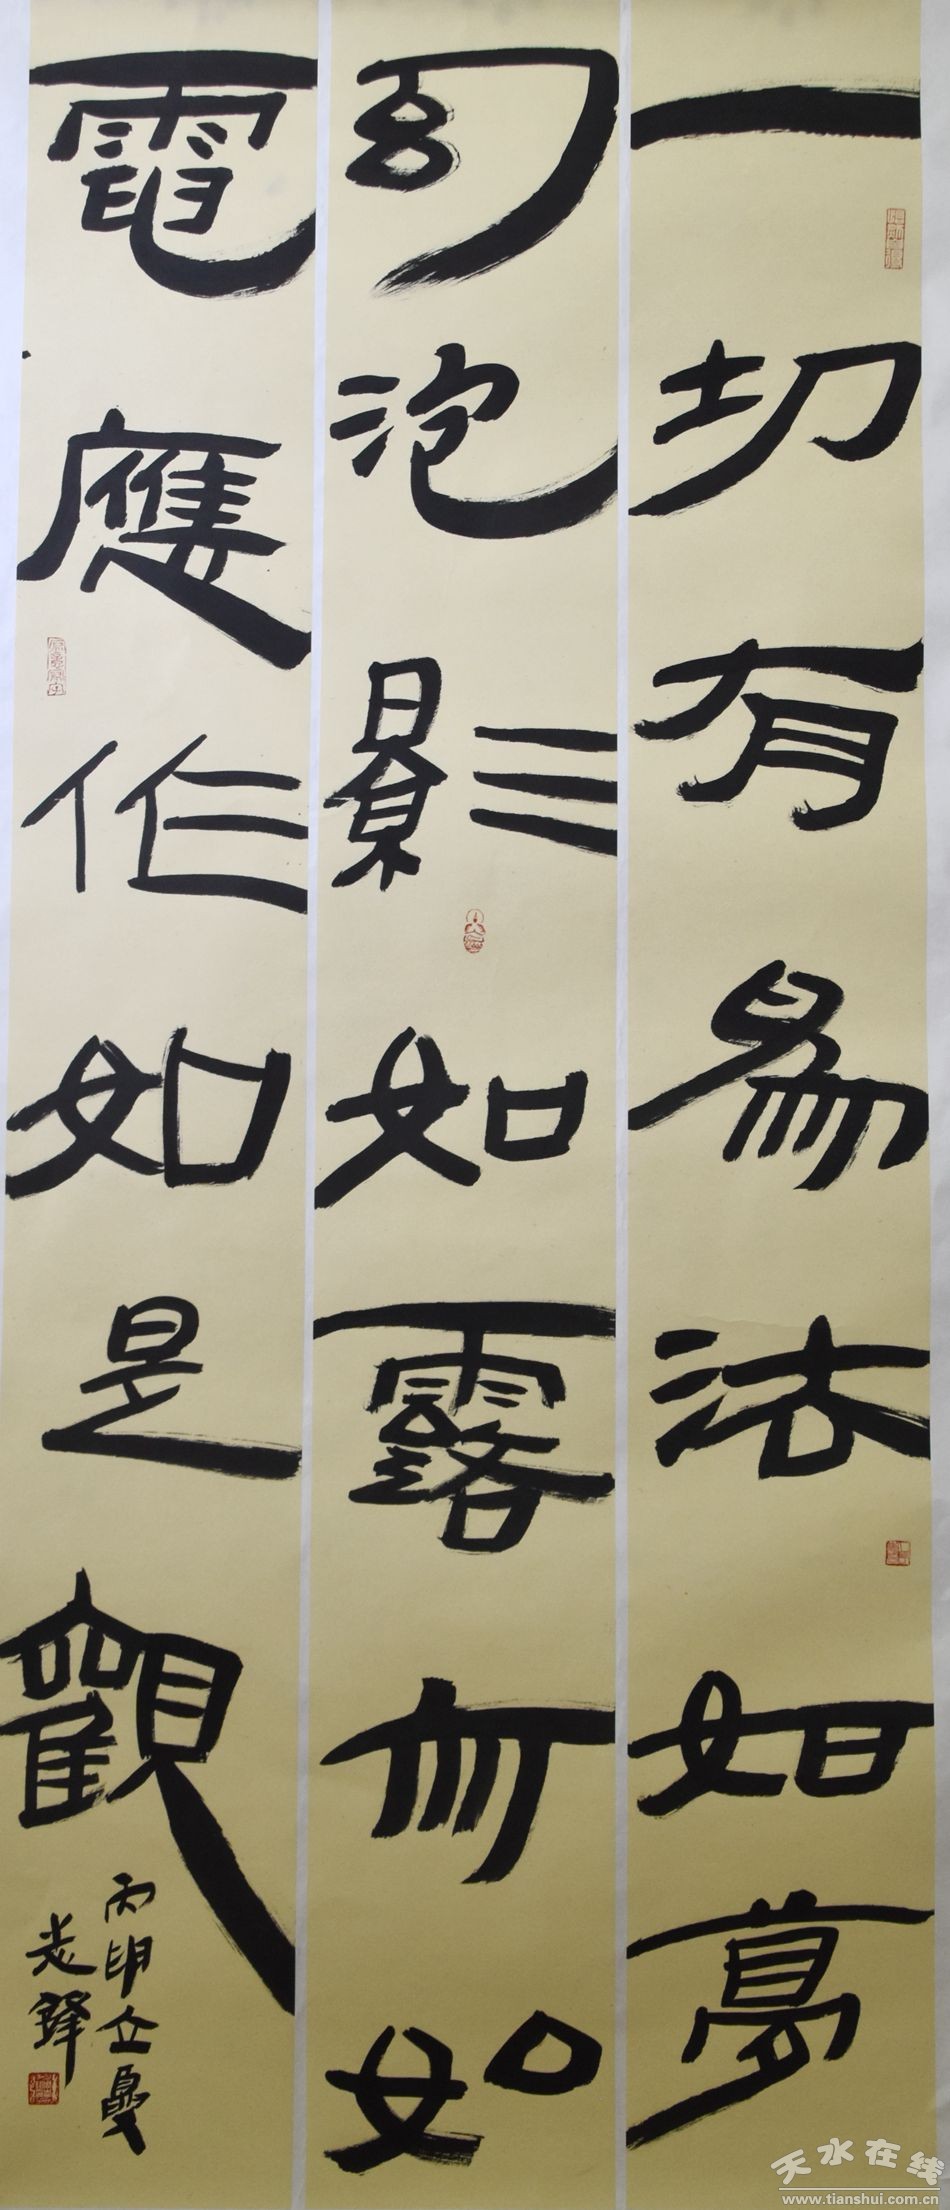 一切有為法如夢
幻泡影如露亦如
電應作如是觀
丙申立夏
志鋒
天水在线
www.tianshui.com.cn